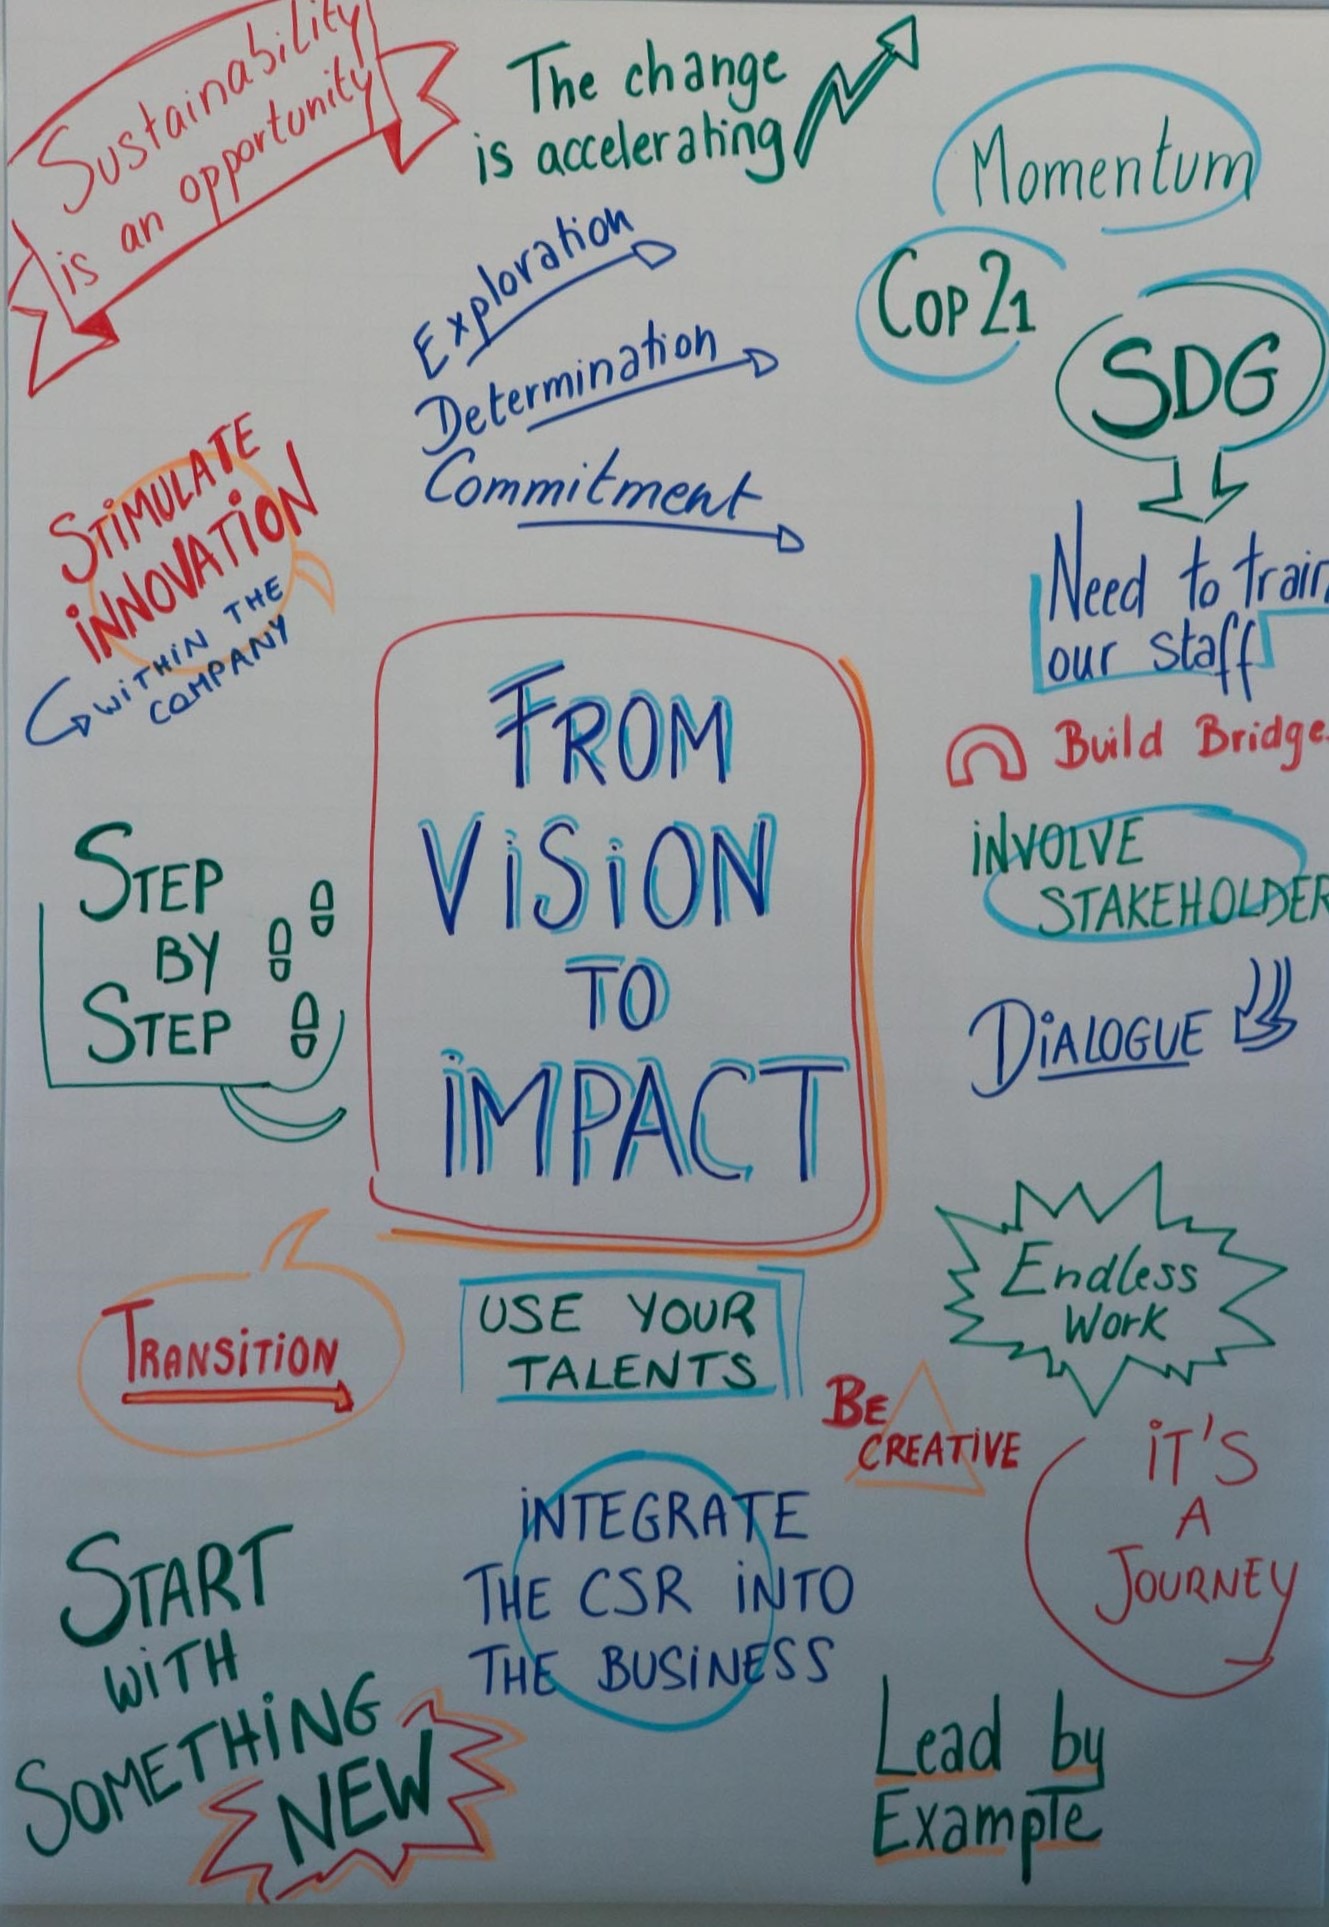 Sustainability
is an opportunity
The change
is accelerating
Momentum
Cop 21
SDG
Exploration
Determination
Commitment
STIMULATE
INNOVATION
WITHIN THE
COMPANY
Need to train
our staff
Build Bridge
INVOLVE
STAKEHOLDER
DIALOGUE
FROM
VISION
TO
IMPACT
STEP
BY
STEP
TRANSITION
USE YOUR
TALENTS
Endless
Work
BE
CREATIVE
IT'S
A
JOURNEY
INTEGRATE
THE CSR INTO
THE BUSINESS
START
WITH
SOMETHING
NEW
Lead by
Example